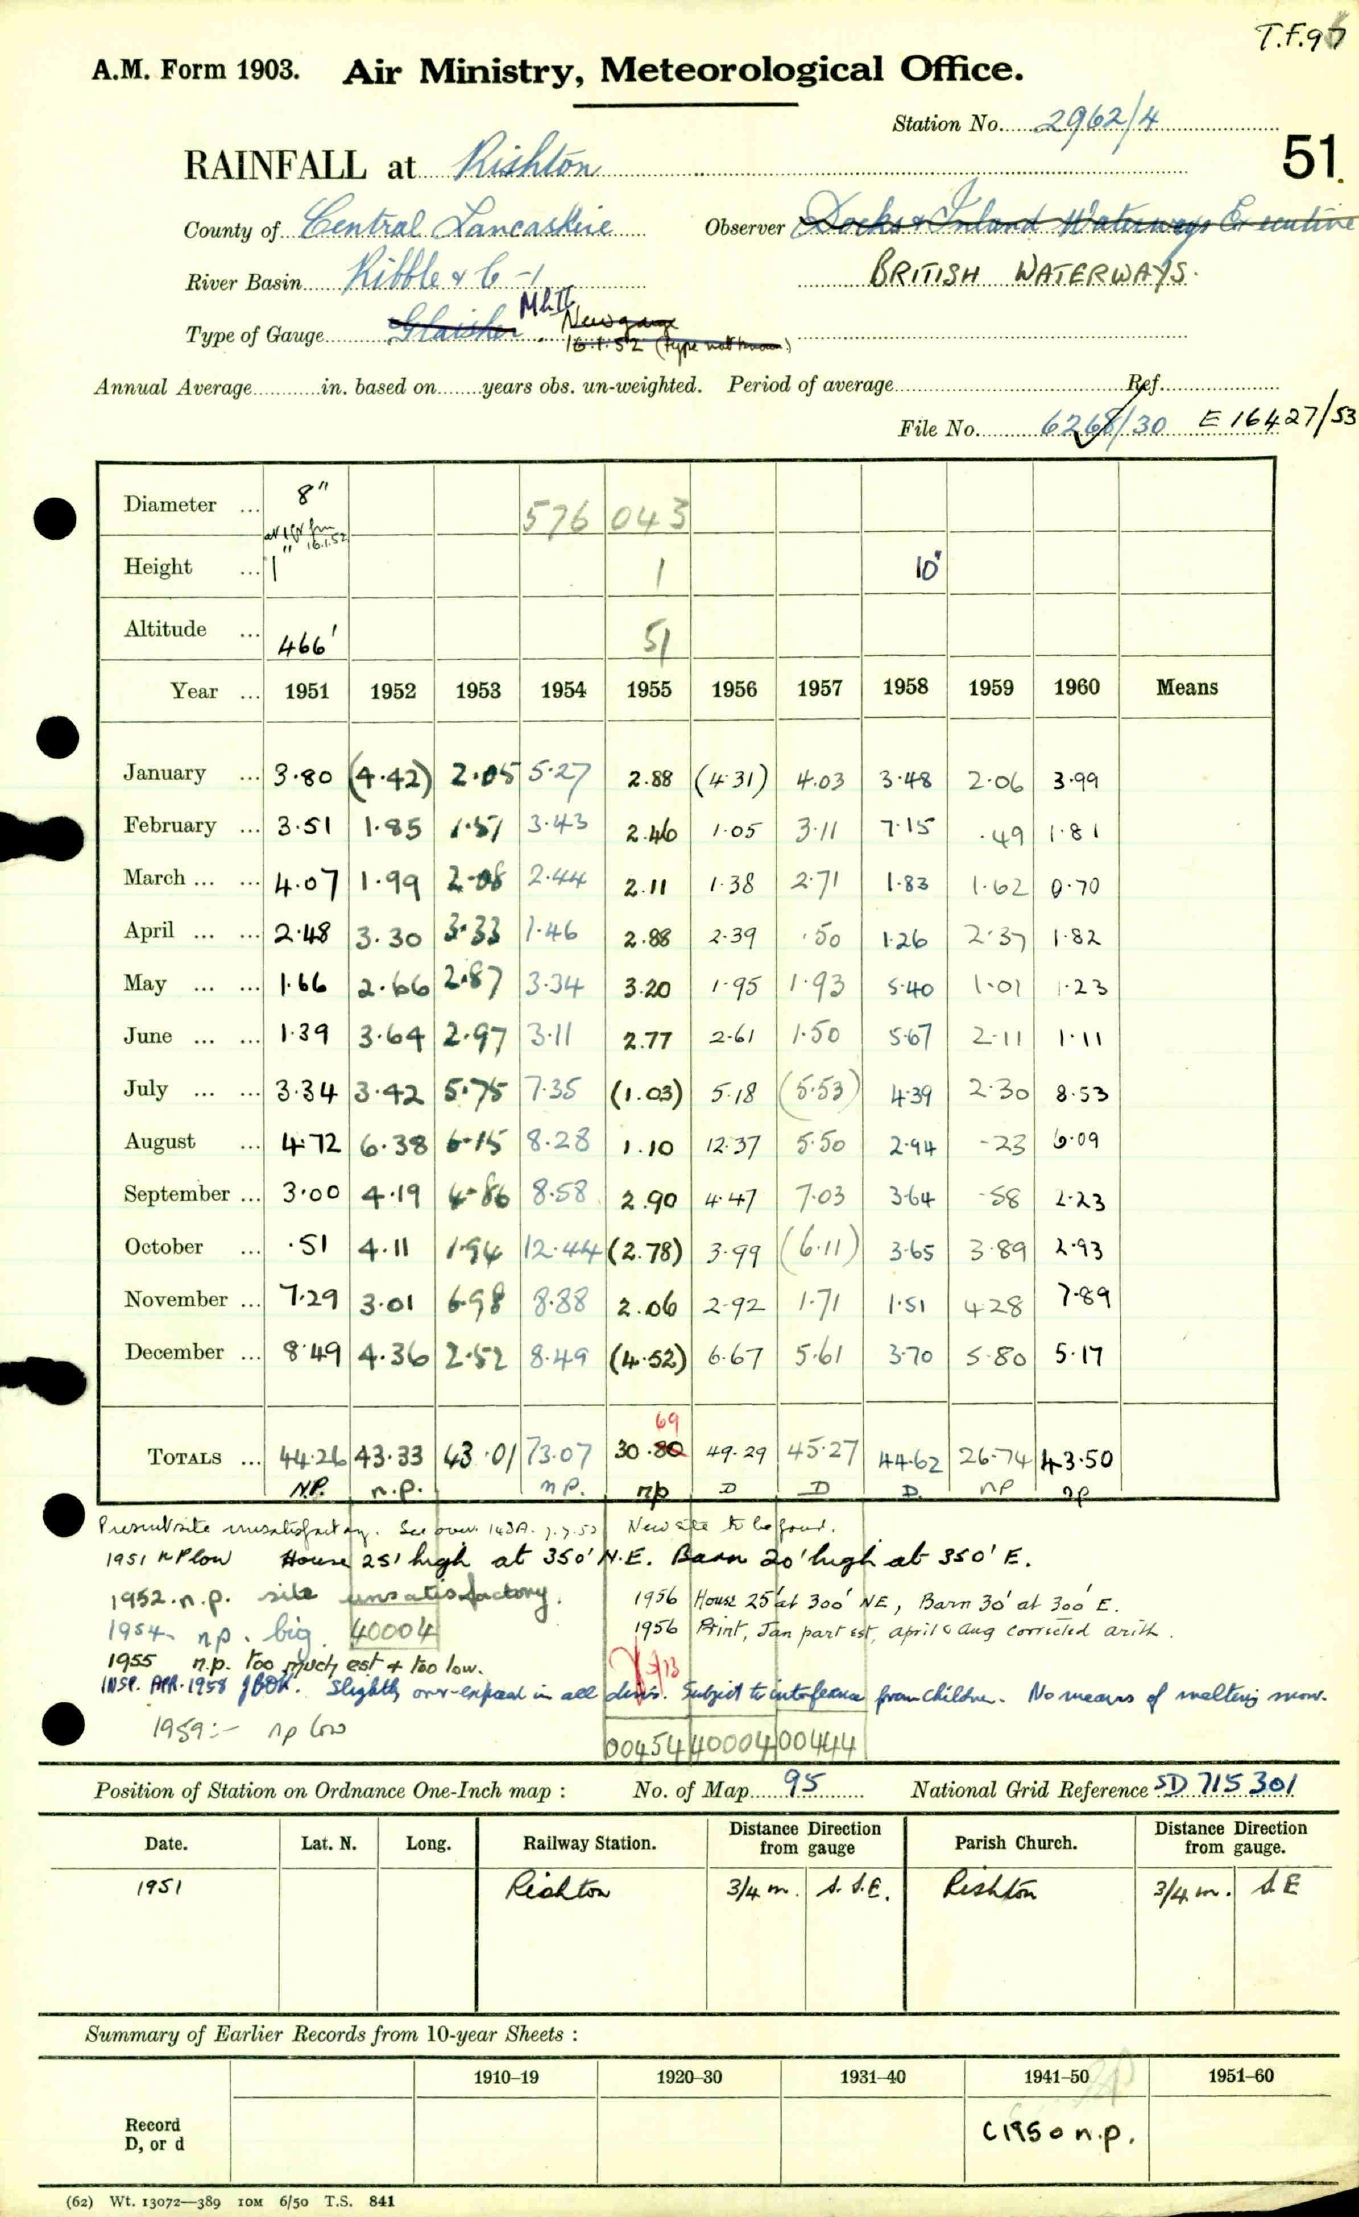 T.F.95
A.M. Form 1903. Air Ministry, Meteorological Office.
Station No. 2962/4
51
RAINFALL at Rishton
County of Central Lancashire Observer Docks & Inland Waterways Executive
River Basin Ribble & C-1 BRITISH WATERWAYS.
Type of Gauge Glaisher. Mk II New gauge
16.1.52 (type not known)
Annual Average in. based on years obs. un-weighted. Period of average Ref.
File No. 6268/30 E 16427/53
Diameter ... 8" 576 043
16.1.52
Height ... 1" 1 10"
Altitude ... 466' 51
Year ... 1951 1952 1953 1954 1955 1956 1957 1958 1959 1960 Means
January ... 3.80 (4.42) 2.05 5.27 2.88 (4.31) 4.03 3.48 2.06 3.99
February ... 3.51 1.85 1.51 3.43 2.46 1.05 3.11 7.15 .49 1.81
March ... ... 4.07 1.99 2.08 2.44 2.11 1.38 2.71 1.83 1.62 0.70
April ... ... 2.48 3.30 3.33 1.46 2.88 2.39 .50 1.26 2.37 1.82
May ... ... 1.66 2.66 2.87 3.34 3.20 1.95 1.93 5.40 1.01 1.23
June ... ... 1.39 3.64 2.97 3.11 2.77 2.61 1.50 5.67 2.11 1.11
July ... ... 3.34 3.42 5.75 7.35 (1.03) 5.18 (5.53) 4.39 2.30 8.53
August ... 4.72 6.38 6.15 8.28 1.10 12.37 5.50 2.94 .23 6.09
September ... 3.00 4.19 4.86 8.58 2.90 4.47 7.03 3.64 .58 2.23
October ... .51 4.11 1.94 12.44 (2.78) 3.99 (6.11) 3.65 3.89 2.93
November ... 7.29 3.01 6.98 8.88 2.06 2.92 1.71 1.51 4.28 7.89
December ... 8.49 4.36 2.52 8.49 (4.52) 6.67 5.61 3.70 5.80 5.17
69
TOTALS ... 44.26 43.33 43.01 73.07 30.80 49.29 45.27 44.62 26.74 43.50
N.P. n.p. n.p. np D D D. np np
Present site unsatisfactory. See over 143A. 7.7.52 New site to be found.
1951 n P low House 25' high at 350' N.E. Barn 20' high at 350' E.
1952. n.p. site unsatisfactory. 1956 House 25' at 300' NE, Barn 30' at 300' E.
1954 np. big. 40004 1956 Print, Jan part est, april & aug corrected arith.
1955 n.p. too much est & too low.
INSP. APR. 1958 JBOK. Slightly over-exposed in all dirns. Subject to interference from children. No means of melting snow.
1959:- np low
00454 40004 00444
Position of Station on Ordnance One-Inch map : No. of Map 95 National Grid Reference SD 715 301
Date. Lat. N. Long. Railway Station. Distance from Direction gauge Parish Church. Distance from Direction gauge.
1951 Rishton 3/4 m. S.S.E. Rishton 3/4 m. S.E
Summary of Earlier Records from 10-year Sheets :
1910–19 1920–30 1931–40 1941–50 1951–60
Record
D, or d C1950 n.p.
(62) Wt. 13072—389 10M 6/50 T.S. 841